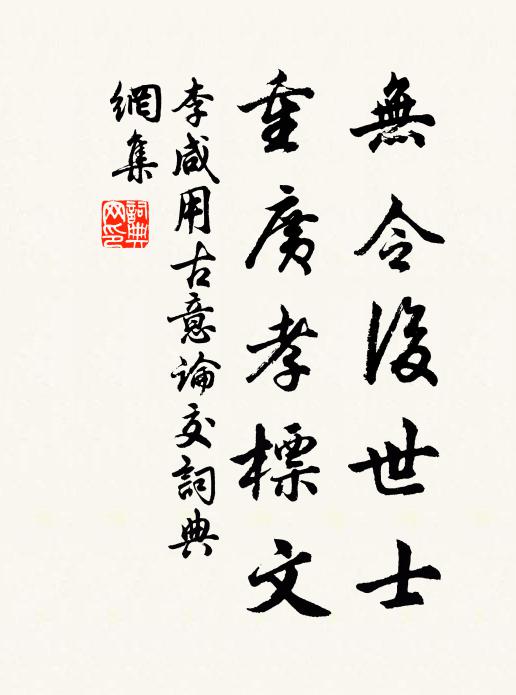 無令後世士
重廣孝標文
李咸用古意論交詞典
網集
詞典網印